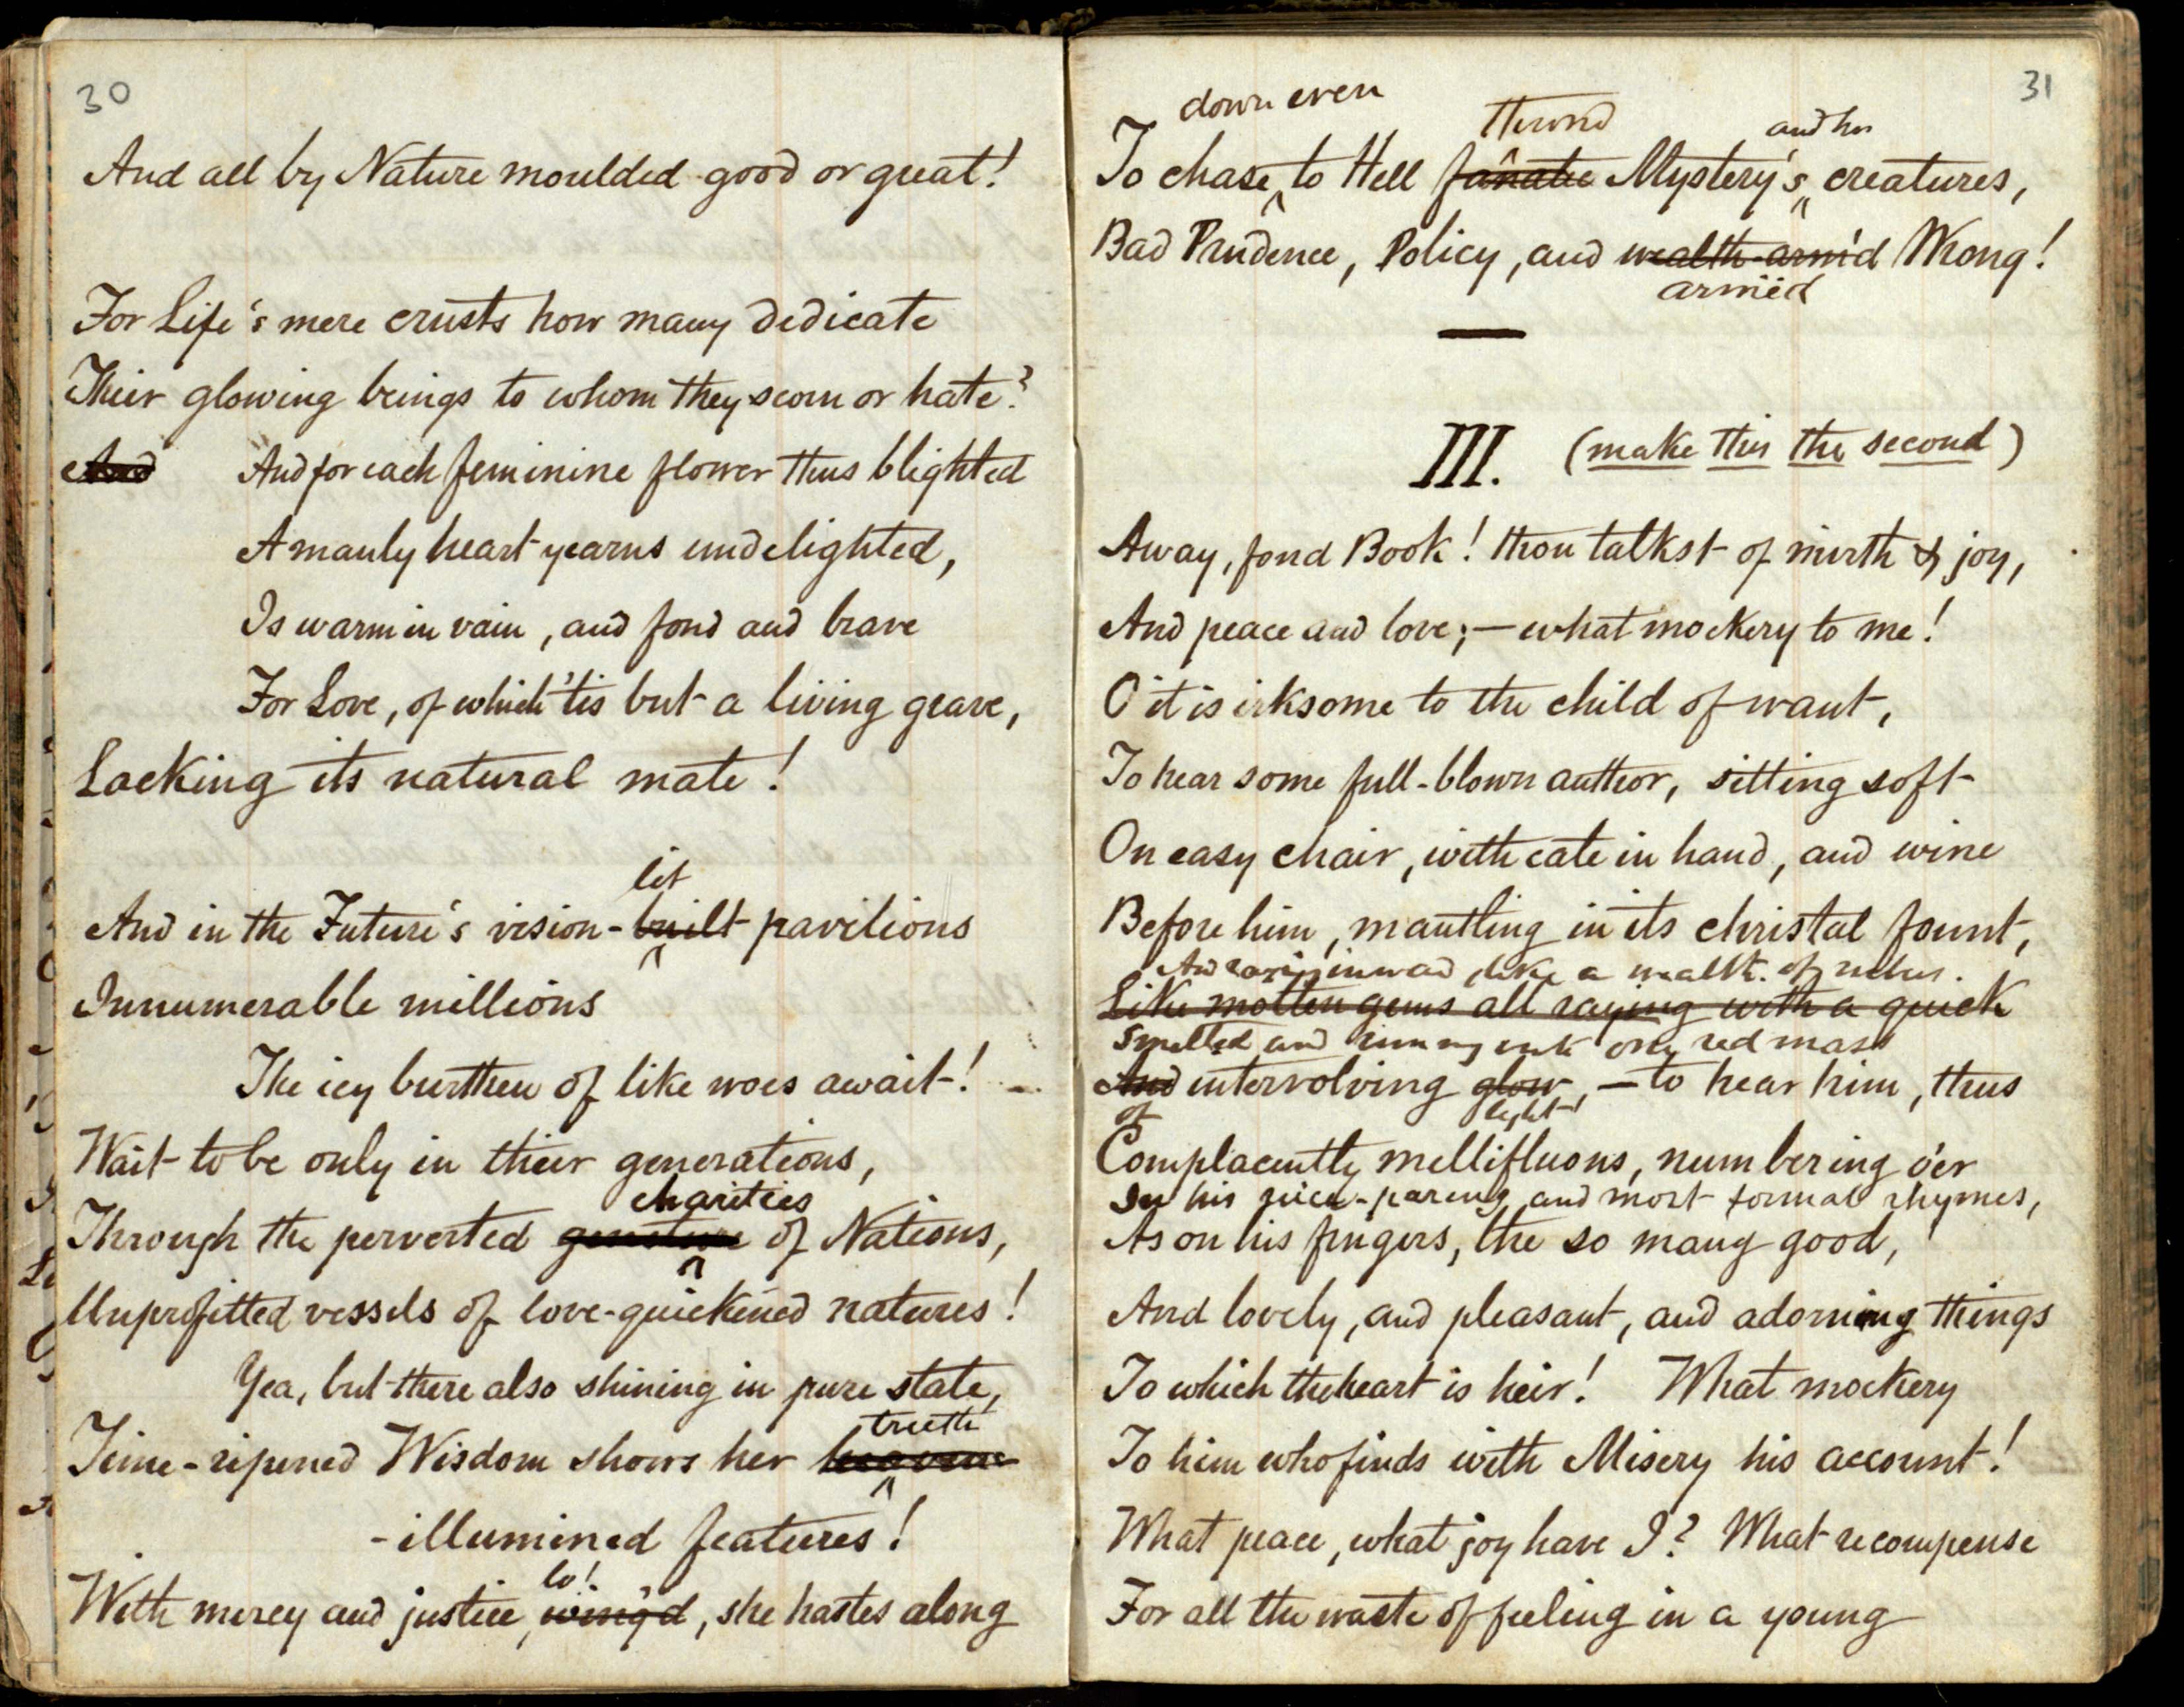 30
And all by Nature moulded good or great!
For Life's mere crusts how many dedicate
Their glowing beings to whom they scorn or hate?
And And for each feminine flower thus blighted
A manly heart yearns undelighted,
Is warm in vain, and fond and brave
For Love, of which 'tis but a living grave,
Lacking its natural mate!
lit
And in the Future's vision-built pavilions
Innumerable millions
The icy burthen of like woes await!
Wait to be only in their generations,
charities
Through the perverted of Nations,
Unprofitted vessels of love-quickened natures!
Yea, but there also shining in pure state,
truth
Time-ripened Wisdom shows her heavens
-illumined features!
lo!
With mercy and justice, wing'd, she hastes along
31
down even
throned
and her
To chase to Hell fanatic Mystery's creatures,
Bad Prudence, Policy, and wealth-arm'd Wrong!
arméd
III. (make this the second)
Away, fond Book! thou talkst of mirth & joy,
And peace and love;—what mockery to me!
O it is irksome to the child of want,
To hear some full-blown author, sitting soft
On easy chair, with cate in hand, and wine
Before him, mantling in its christal fount,
And raying inward, like a wealth of rubies.
Like molten gems all raying with a quick
Smelted and running into one red mass
And intervolving glow,—to hear him, thus
of light!
Complacently mellifluous, numbering o'er
In his nice-paring and most formal rhymes,
As on his fingers, the so many good,
And lovely, and pleasant, and adorning things
To which the heart is heir! What mockery
To him who finds with Misery his account!
What peace, what joy have I? What recompense
For all the waste of feeling in a young